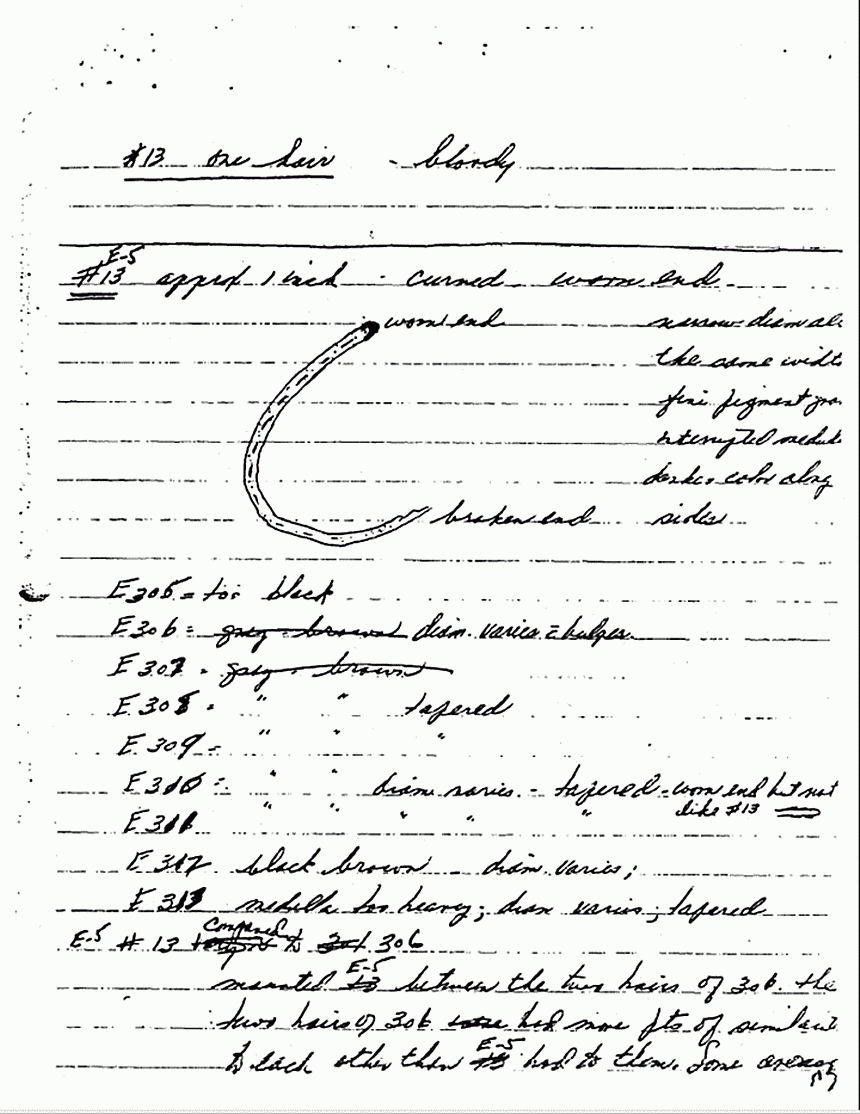 #13 one hair - bloody
E-5
#13 approx 1 inch - curved - worn end -
worn end narrow - diam all
the same widt
fine pigment gra
nterrupted medul
darker color along
broken end sides
E 305 = too black
E 306 = grey - brown diam. varies = bulges
E 307 = grey - brown
E 308 = " " tapered
E 309 = " " "
E 310 = " " diam varies - tapered - worn end but not
like #13
E 311 " " " " "
E 312 black brown - diam varies;
E 313 medulla too heavy; diam varies; tapered
Compared
E-5 # 13 to 306
E-5
mounted #3 between the two hairs of 306. the
two hairs of 306 were had more pts of similari
E-5
to each other than #3 had to them. Some